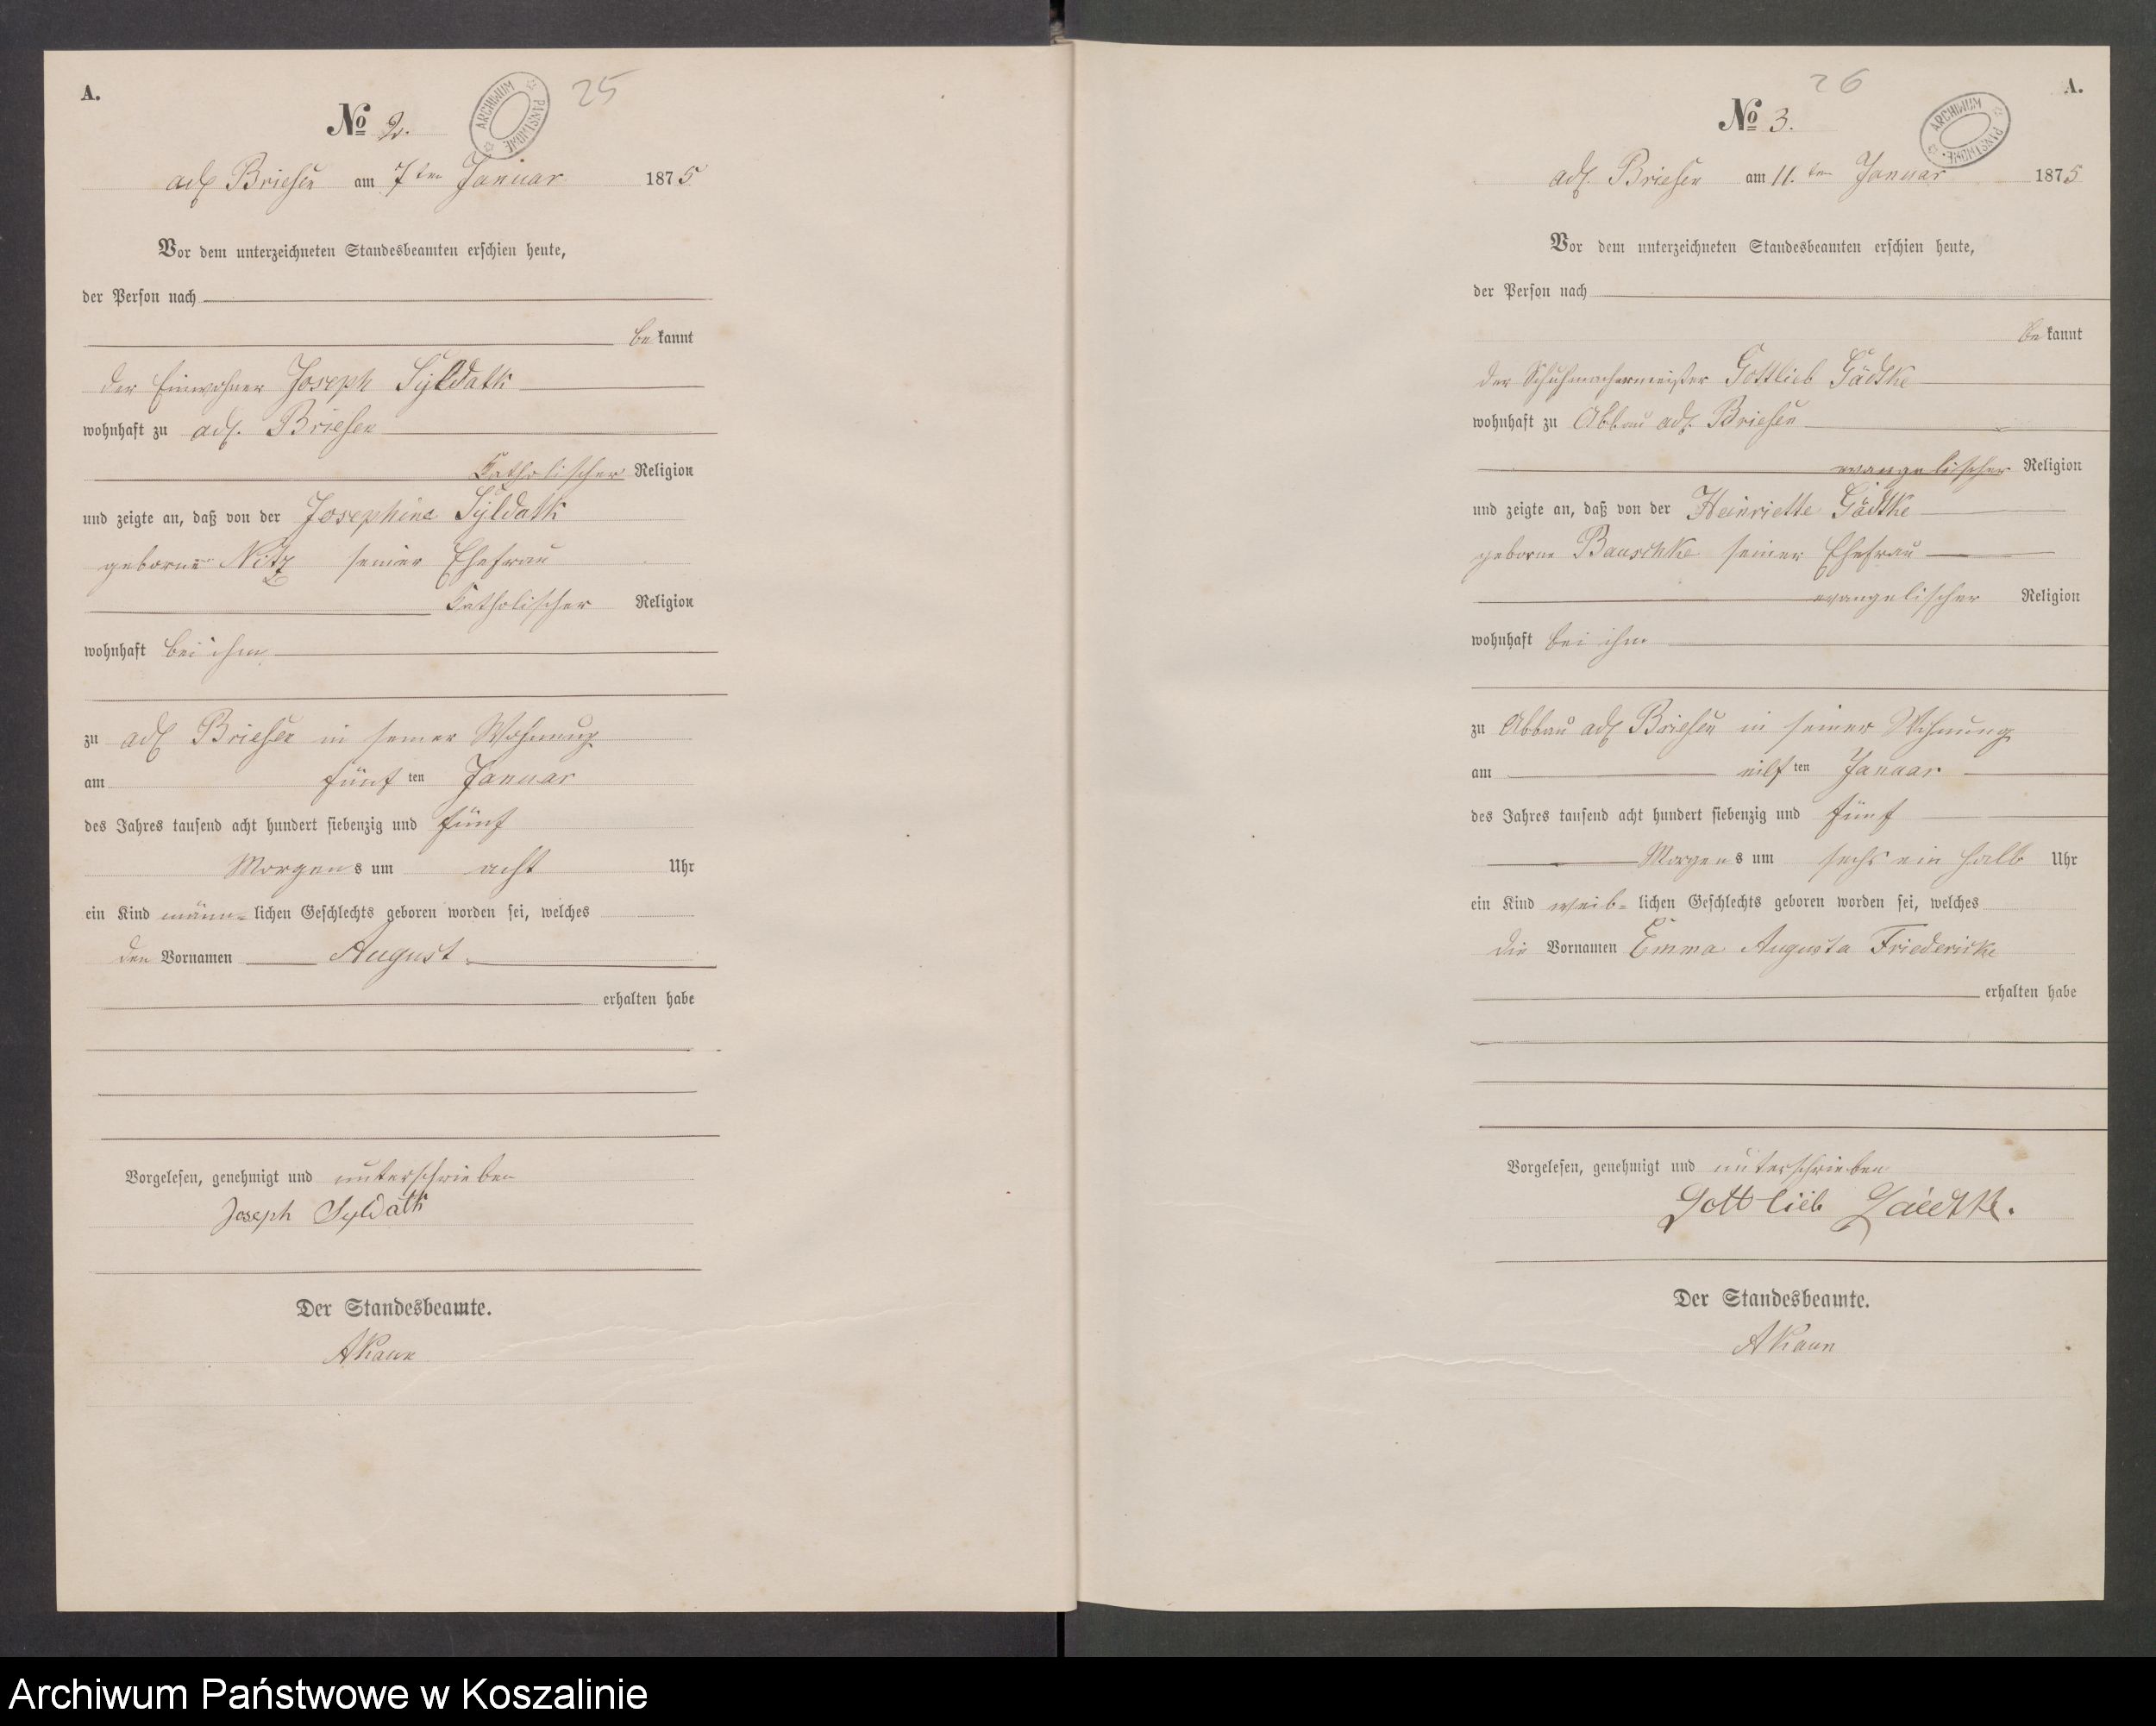 A.
25
No 2.
ARCHIWUM PAŃSTWOWE
adl Briesen am 7ten Januar 1875
Vor dem unterzeichneten Standesbeamten erschien heute,
der Person nach
bekannt
der Einwohner Joseph Syldatk
wohnhaft zu adl. Briesen
Katholischer Religion
und zeigte an, daß von der Josephine Syldatk
geborne Nitz seiner Ehefrau
Katholischer Religion
wohnhaft bei ihm
zu adl Briesen in seiner Wohnung
am fünf ten Januar
des Jahres tausend acht hundert siebenzig und fünf
Morgens um acht Uhr
ein Kind männ= lichen Geschlechts geboren worden sei, welches
den Vornamen August
erhalten habe
Vorgelesen, genehmigt und unterschrieben
Joseph Syldatk
Der Standesbeamte.
26
A.
No 3.
ARCHIWUM PAŃSTWOWE
adl. Briesen am 11.ten Januar 1875
Vor dem unterzeichneten Standesbeamten erschien heute,
der Person nach
bekannt
der Schuhmachermeister Gottlieb Gädtke
wohnhaft zu Abbau adl. Briesen
evangelischer Religion
und zeigte an, daß von der Heinriette Gädtke
geborne Bauschke seiner Ehefrau
evangelischer Religion
wohnhaft bei ihm
zu Abbau adl Briesen in seiner Wohnung
am eilf ten Januar
des Jahres tausend acht hundert siebenzig und fünf
Morgens um sechs ein halb Uhr
ein Kind weib= lichen Geschlechts geboren worden sei, welches
die Vornamen Emma Augusta Friedericke
erhalten habe
Vorgelesen, genehmigt und unterschrieben
Gottlieb Gäedtke.
Der Standesbeamte.
Archiwum Państwowe w Koszalinie